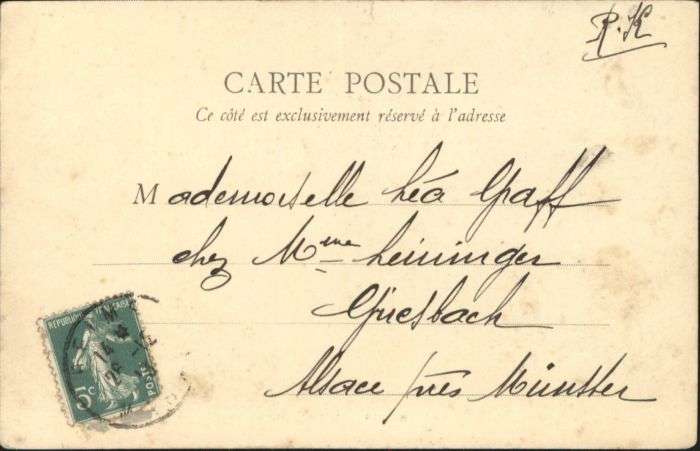 R.K
CARTE POSTALE
Ce côté est exclusivement réservé à l'adresse
Mademoiselle Léa Graff
chez Mme Leininger
Griesbach
Alsace près Münster
5c